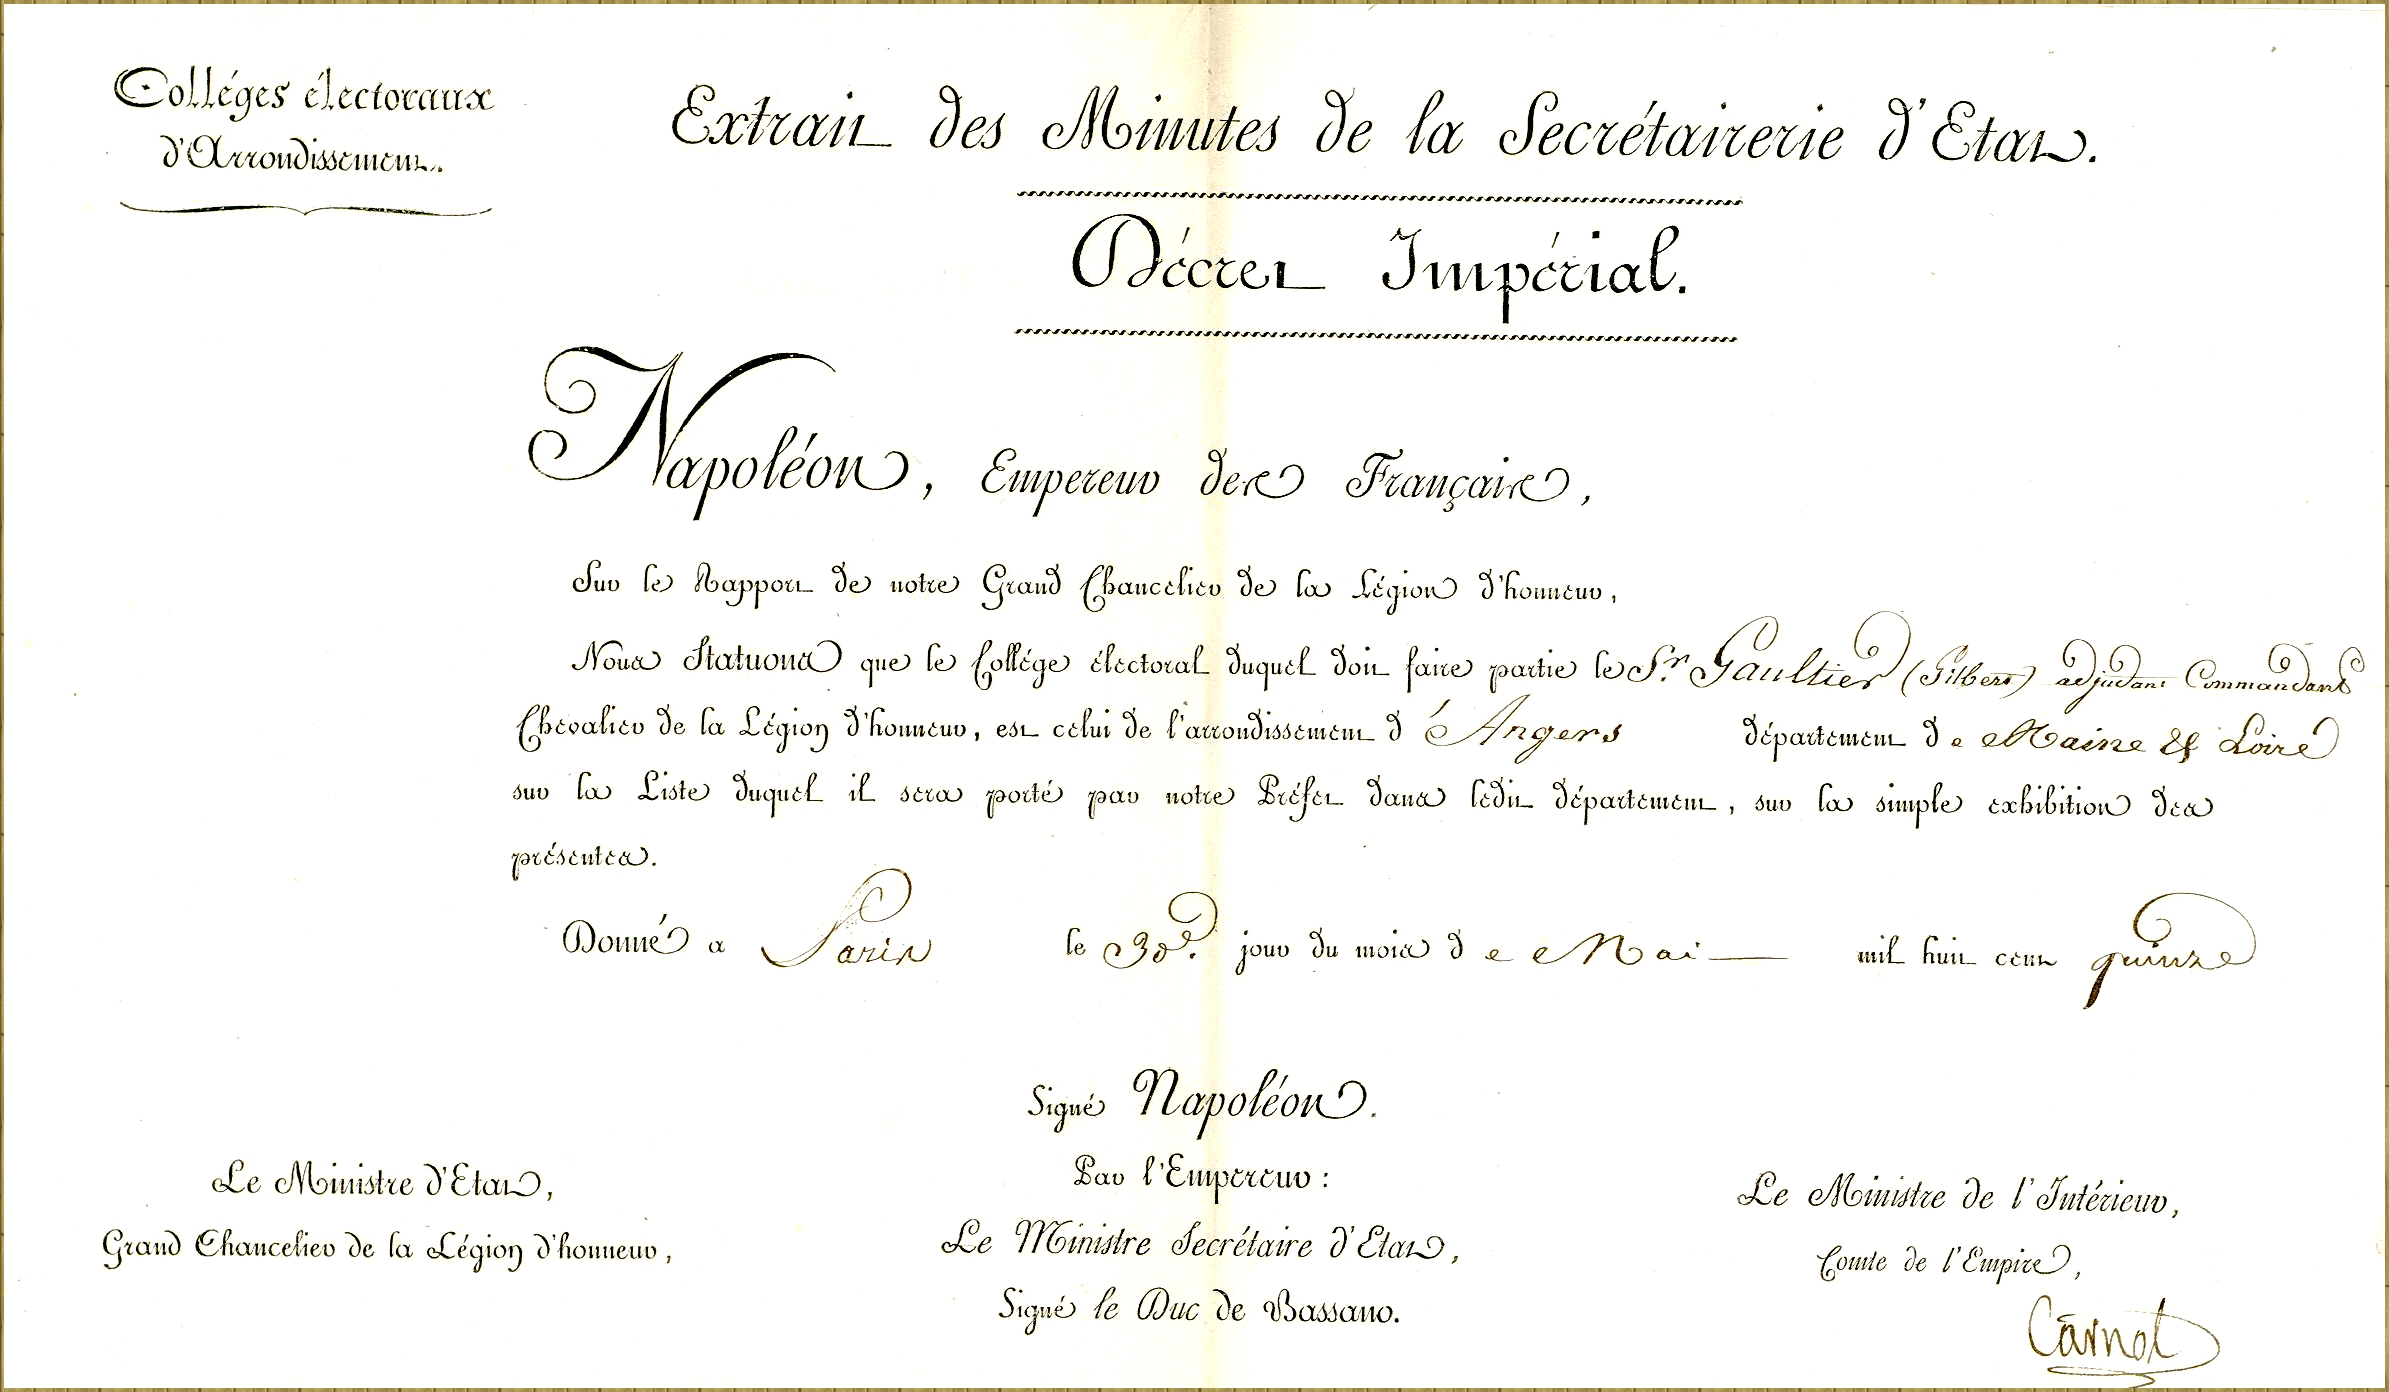 Colléges électoraux
d'Arrondissement.
Extrait des Minutes de la Secrétairerie d'Etat.
Décret Impérial.
Napoléon, Empereur des Français,
Sur le Rapport de notre Grand Chancelier de la Légion d'honneur,
Nous Statuons que le Collége électoral duquel doit faire partie le Sr. Gaultier (Gilbert) adjudant Commandant
Chevalier de la Légion d'honneur, est celui de l'arrondissement d'Angers département de Maine & Loire
sur la Liste duquel il sera porté par notre Préfet dans ledit département, sur la simple exhibition des
présentes.
Donné a Paris le 30e. jour du mois de Mai mil huit cent quinze
Signé Napoléon.
Par l'Empereur :
Le Ministre Secrétaire d'Etat,
Signé le Duc de Bassano.
Le Ministre d'Etat,
Grand Chancelier de la Légion d'honneur,
Le Ministre de l'Intérieur,
Comte de l'Empire,
Carnot